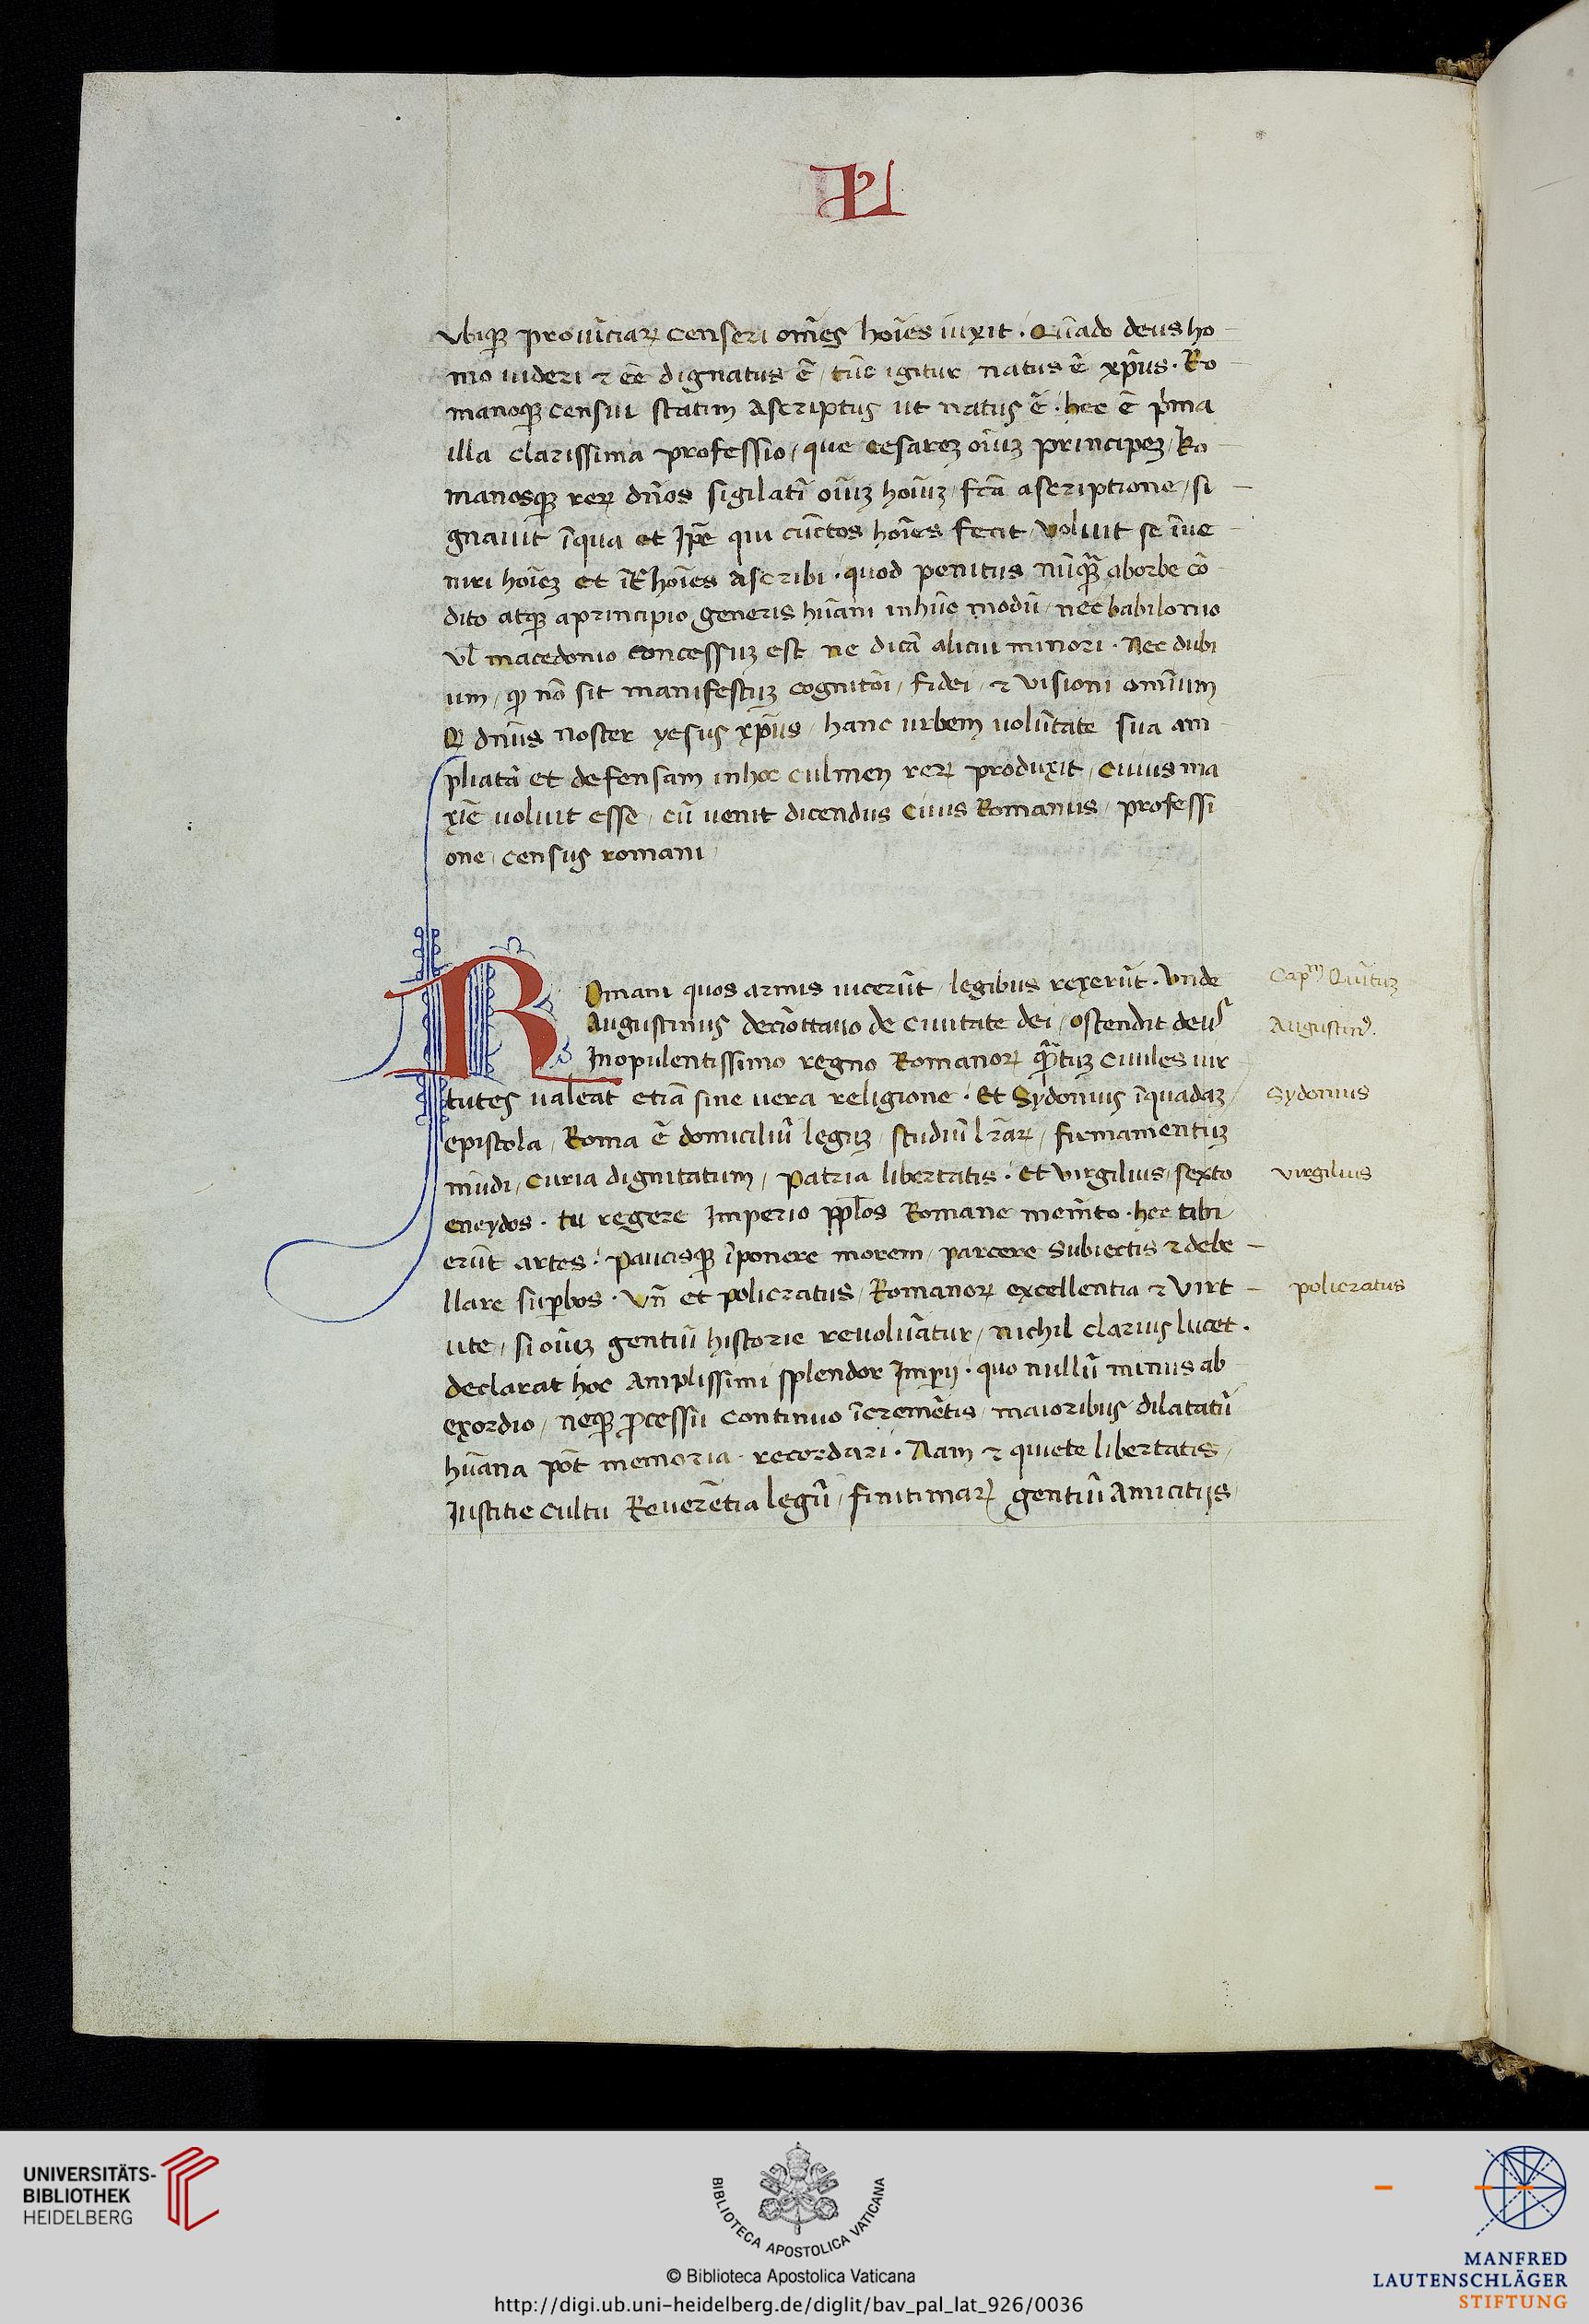 L
vbiqꝫ prouĩciaꝝ censeri om̃es hoĩes iuxit. Quãdo deus ho-
mo uideri ⁊ eẽ dignatus ẽ / tũc igitur / natus ẽ xp̃us. Ro-
manoqꝫ censui statim Ascriptus ut natus ẽ. hec ẽ p̃ma
illa clarissima professio / que cesareꝫ oĩuꝫ principeꝫ / Ro-
manosqꝫ reꝝ dños sigilatĩ oĩuꝫ hoĩuꝫ / fcã ascriptione / si-
gnauit ĩqua et Ip̃e qui cũctos hoĩes fecit / voluit se ĩue-
niri hoĩeꝫ et ĩt̃ hoĩes ascribi. quod penitus nũqꝫ̃ aborbe cõ-
dito atqꝫ aprincipio generis hũani inhũc modũ / nec babilonio
vl̃ macedonio concessuꝫ est ne dicã alicui minori. Nec dubi
um / qꝫ nõ sit manifestuꝫ cognitõi / fidei / ⁊ visioni omĩum
Q dñus noster yesus xp̃us / hanc urbem uolũtate sua am-
pliatã et defensam inhoc culmen reꝝ produxit / cuius ma
xĩe uoluit esse / cũ uenit dicendus Ciuis Romanus / professi
one / census romani /
ROmani quos armis uicerũt / legibus rexerũt. Vnde
Augustinus deciõttauo de Ciuitate dei / ostendit deus
Inopulentissimo regno Romanoꝝ qꝫ̃tuꝫ Ciuiles uir
tutes ualeãt etiã sine uera religione. Et Sydonius ĩquadaꝫ /
epistola / Roma ẽ domiciliũ leguꝫ / studiũ lr̃aꝝ / firmamentuꝫ
mũdi / Curia dignitatum / Patria libertatis. Et virgilius / sexto
eneydos. tu regere Imperio pp̃los Romane memẽto. hec tibi /
erũt artes. Paucisqꝫ ĩponere morem / parcere subiectis ⁊ debe-
llare suꝑbos. Vñ et policratus / Romanoꝝ excellentia ⁊ virt-
ute / si oĩuꝫ gentiũ historie reuoluãtur / nichil clarius lucet.
declarat hoc Amplissimi splendor Imꝑij. quo nullũ minus ab
exordio / neqꝫ ꝓcessu continuo ĩcremẽtis / maioribus / dilatatũ
hũana põt memoria recordari. Nam ⁊ quiete libertatis /
Iustitie cultu Reuerẽtia legũ / finitimaꝝ gentiũ Amicitijs /
Capᵐ Quĩtuꝫ
Augustinꝰ.
Sydonius
virgilius
policratus
UNIVERSITÄTS-
BIBLIOTHEK
HEIDELBERG
BIBLIOTECA APOSTOLICA VATICANA
© Biblioteca Apostolica Vaticana
http://digi.ub.uni-heidelberg.de/diglit/bav_pal_lat_926/0036
MANFRED
LAUTENSCHLÄGER
STIFTUNG